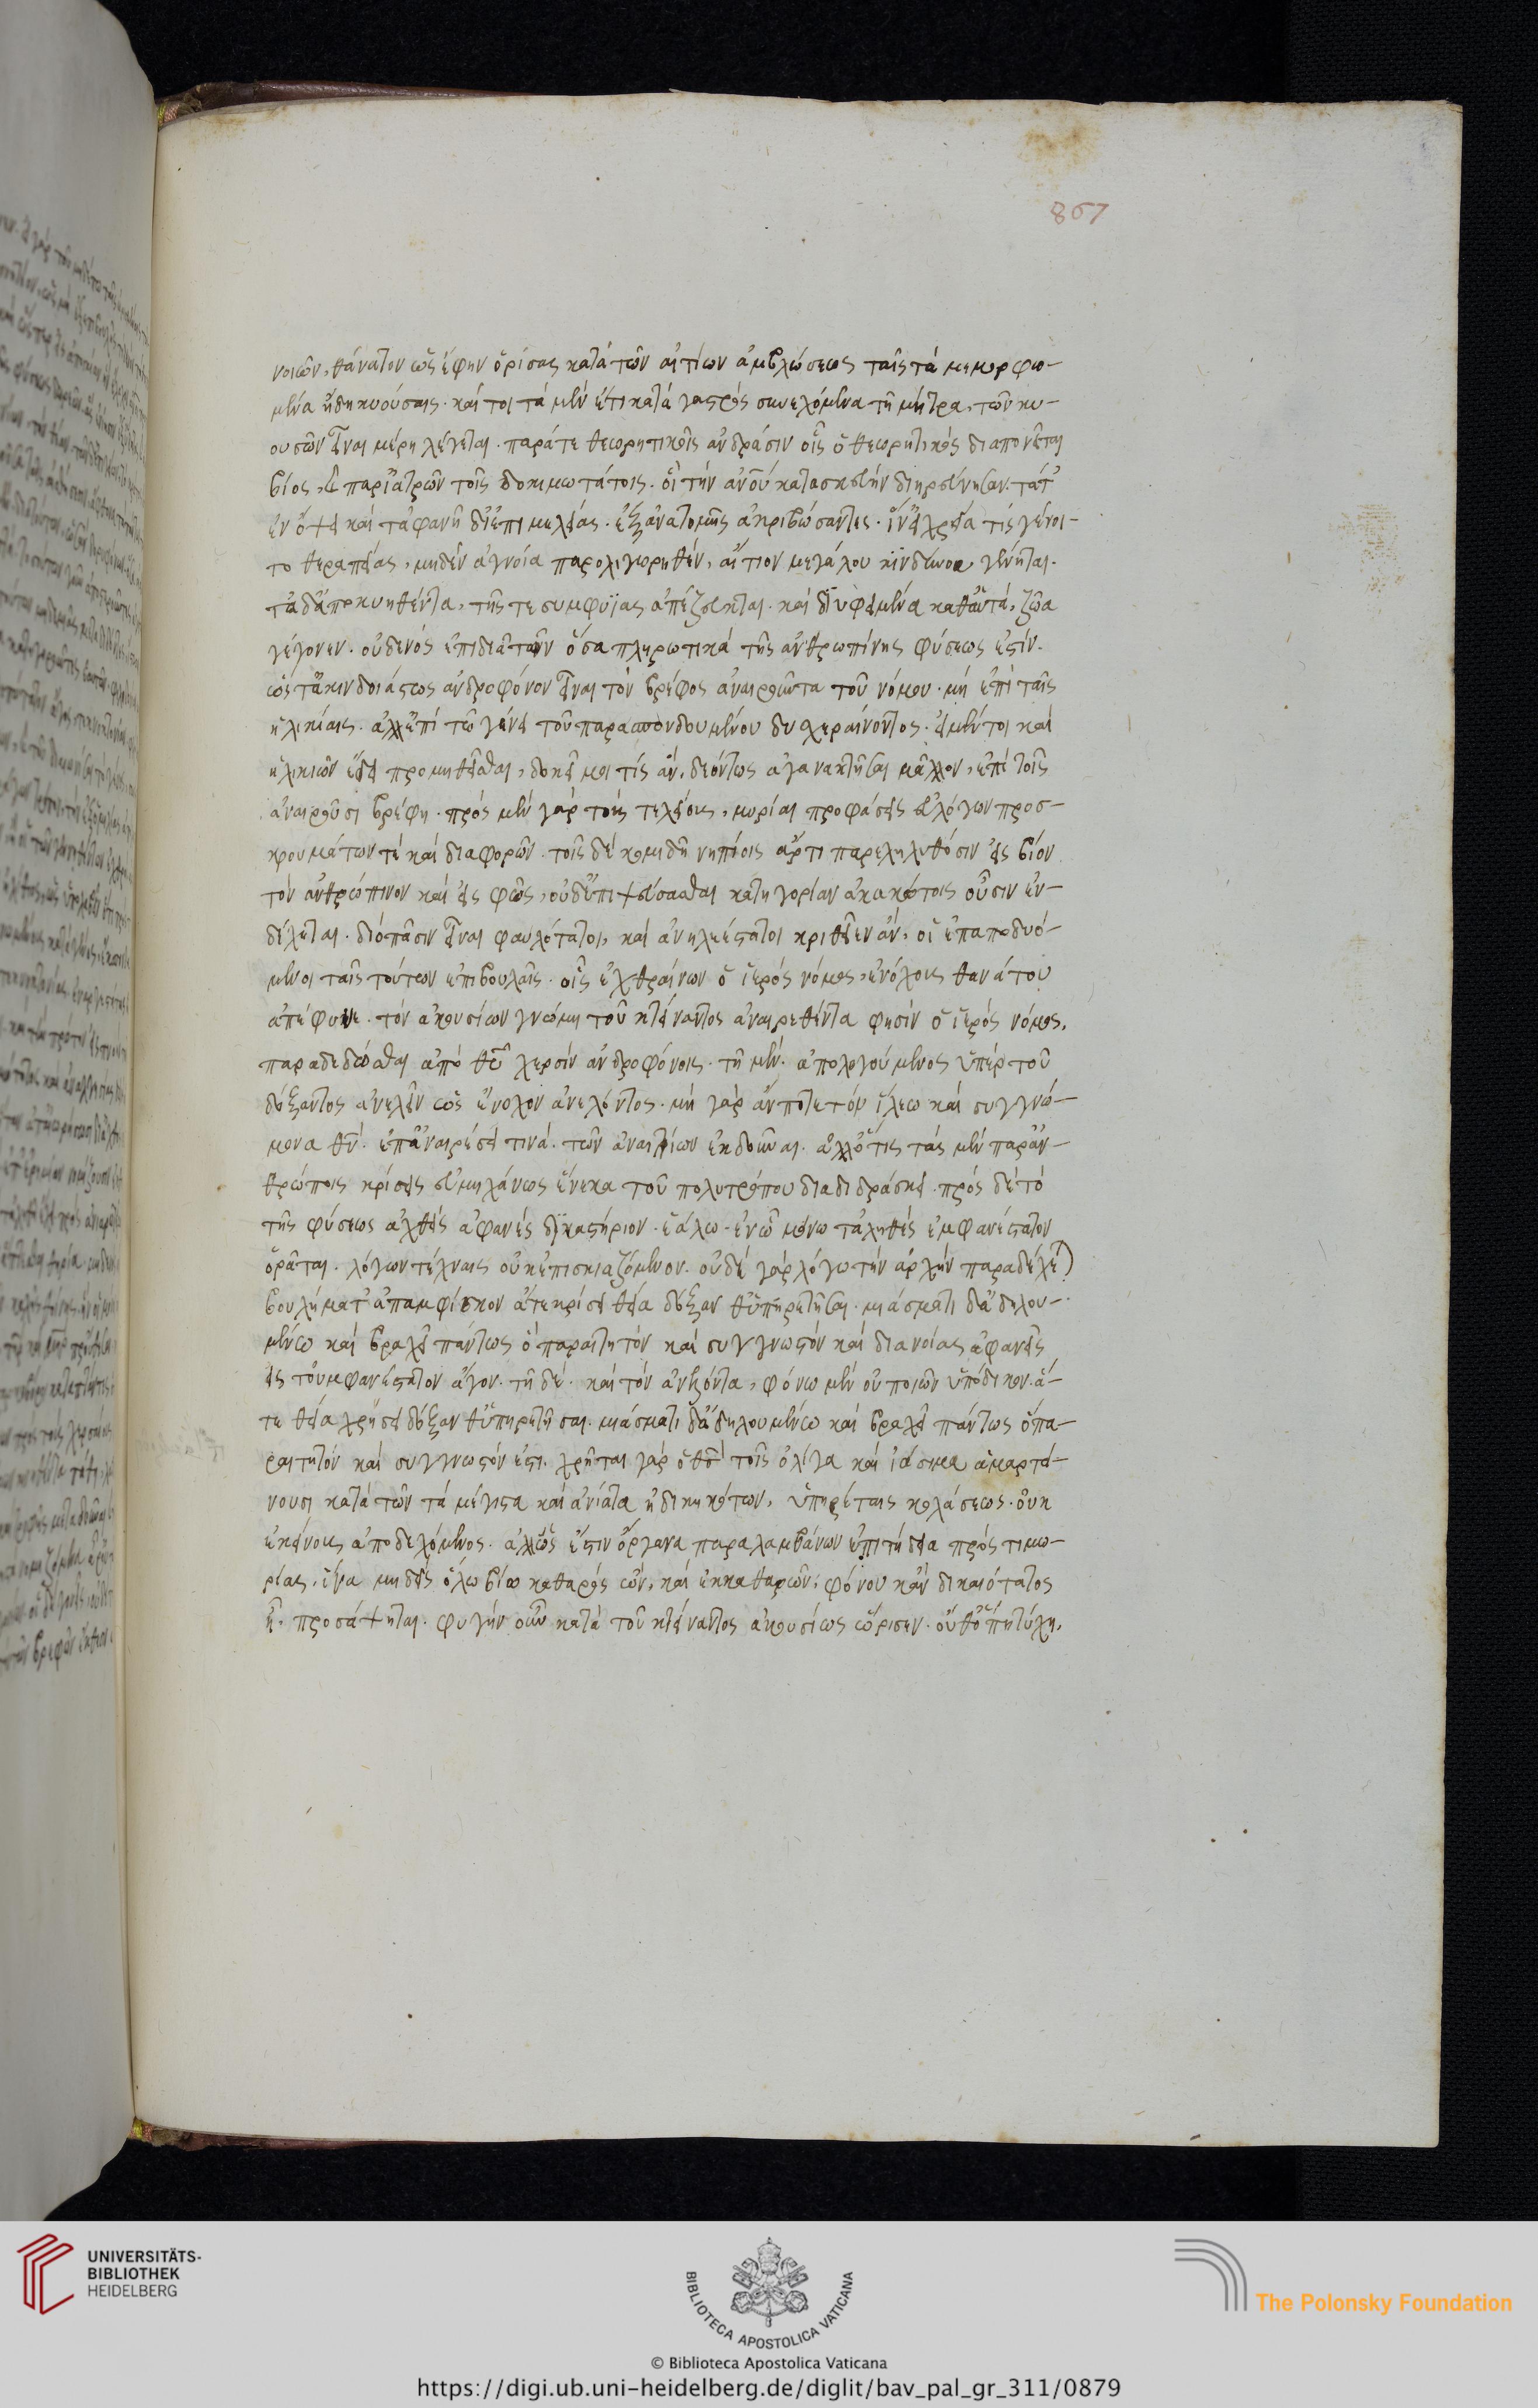 867
νοιῶν, θάνατον ὡς ἔφην ὁρίσας κατὰ τῶν αἰτίων ἀμβλώσεως ταῖς τὰ μεμορφω-
μένα ἤδη κυούσαις. καί τοι τὰ μὲν ἔτι κατὰ γαστρὸς συνεχόμενα τῆ μήτρα, τῶν κυ-
ουσῶν εἶναι μέρη λέγεται. παρά τε θεωρητικοῖς ἀνδράσιν οἷς ὁ θεωρητικὸς διαπονεῖται
βίος, καὶ παρ' ἰατρῶν τοῖς δοκιμωτάτοις. οἳ τὴν ἀνοῦ κατασκευὴν διηρεύνησαν. τά τ'
ἐν ὄψει καὶ τἀφανῆ δι' ἐπιμελείας. ἐξ ἀνατομῆς ἀκριβώσαντες. ἵν' εἰ χρεία τίς γένοι-
το θεραπείας, μηδὲν ἀγνοία παρολιγωρηθὲν, αἴτιον μεγάλου κινδύνου γένηται.
τὰ δ' ἀποκυηθέντα, τῆς τε συμφυΐας ἀπέζευκται. καὶ διυφειμένα καθ' αὑτά, ζῶα
γέγονεν. οὐδενὸς ἐπιδεᾶ τῶν ὅσα πληρωτικὰ τῆς ἀνθρωπίνης φύσεως ἐστίν.
ὥστ' ἀκινδοιάστως ἀνδροφόνον εἶναι τὸν βρέφος ἀναιροῦντα τοῦ νόμου. μὴ ἐπὶ ταῖς
ἡλικίαις. ἀλλ' ἐπὶ τῶ γένει τοῦ παρασπονδουμένου δυσχεραίνοντος. εἰ μέντοι καὶ
ἡλικιῶν ἔδει προμηθεῖσθαι, δοκεῖ μοι τίς ἂν, δεόντως ἀγανακτῆσαι μᾶλλον, ἐπὶ τοῖς
ἀναιροῦσι βρέφη. πρὸς μὲν γὰρ τοὺς τελείους, μυρίαι προφάσεις εὐλόγων προσ-
κρουμάτων τὲ καὶ διαφορῶν. τοῖς δὲ κομιδῆ νηπίοις ἄρτι παρεληλυθόσιν εἰς βίον
τὸν ἀνθρώπινον καὶ εἰς φῶς, οὐδ' ἐπιψεύσασθαι κατηγορίαν ἀκακώτοις οὖσιν ἐν-
δέχεται. διὸ πᾶσιν εἶναι φαυλότατοι, καὶ ἀνηλεέστατοι κριθεῖεν ἂν, οἱ ἐπαποδυό-
μενοι ταῖς τούτων ἐπιβουλαῖς. οἷς ἐχθραίνων ὁ ἱερὸς νόμος, ἐνόχους θανάτου
ἀπέφηνε. τὸν ἀκουσίων γνώμη τοῦ κτείναντος ἀναιρεθέντα φησὶν ὁ ἱερὸς νόμος.
παραδεδόσθαι ἀπὸ θῦ χερσὶν ἀνδροφόνοις. τῆ μὲν. ἀπολογούμενος ὑπὲρ τοῦ
δόξαντος ἀνελεῖν ὡς ἔνοχον ἀνελόντος. μὴ γὰρ ἄν ποτε τὸν ἵλεω καὶ συγγνώ-
μονα θν̄. ἐπ' ἀναιρέσει τινὰ. τῶν ἀναιτίων ἐκδοῦναι. ἀλλ' ὅτις τὰς μὲν παρ' ἀν-
θρώποις κρίσεις εὐμηχάνως ἕνεκα τοῦ πολυτρόπου διαδιδράσκει. πρὸς δὲ τὸ
τῆς φύσεως ἀχθεὶς ἀφανὲς δικαστήριον. ἑάλω. ἐν ὧ μόνω τἀληθὲς ἐμφανέστατον
ὁρᾶται. λόγων τέχναις οὐκ ἐπισκιαζόμενον. οὐδὲ γὰρ λόγω τὴν ἀρχὴν παραδέχε)
βουλήματ' ἀπαμφίσκον ἄτε κρίσει θεία δόξαν θ' ὑπηρετῆσαι. μιάσματι δ' ἀδηλου-
μένω καὶ βραχεῖ πάντως ὁ παραιτητὸν καὶ συγγνωστὸν καὶ διανοίας ἀφανεῖς
εἰς τοὐμφανέστατον ἄγον. τῆ δὲ. καὶ τὸν ἀνελόντα, φόνω μὲν οὐ ποιῶν ὑπόδικον. ἅ-
τε θεία χρήσει δόξαν θ' ὑπηρετῆσαι. μιάσματι δ' ἀδηλουμένω καὶ βραχεῖ πάντως ὁ πα-
ραιτητὸν καὶ συγγνωστόν ἐστι. χρῆται γὰρ ὁ θς̄ τοῖς ὀλίγα καὶ ἰάσιμα ἁμαρτά-
νουσι κατὰ τῶν τὰ μέγιστα καὶ ἀνίατα ἠδικηκότων, ὑπηρέταις κολάσεως. οὐκ
ἐκείνους ἀποδεχόμενος. ἀλλ' ὥς ἐστιν ὄργανα παραλαμβάνων ἐπιτήδεια πρὸς τιμω-
ρίας, ἵνα μηδεὶς ὅλω βίω καθαρὸς ὢν, καὶ ἐκ καθαρῶν, φόνου κἂν δικαιότατος
ἦ. προσάψηται. φυγὴν οὖν κατὰ τοῦ κτείναντος ἀκουσίως ὥρισεν. οὔθ' ὅπη τύχη,
UNIVERSITÄTS-
BIBLIOTHEK
HEIDELBERG
BIBLIOTECA APOSTOLICA VATICANA
© Biblioteca Apostolica Vaticana
The Polonsky Foundation
https://digi.ub.uni-heidelberg.de/diglit/bav_pal_gr_311/0879